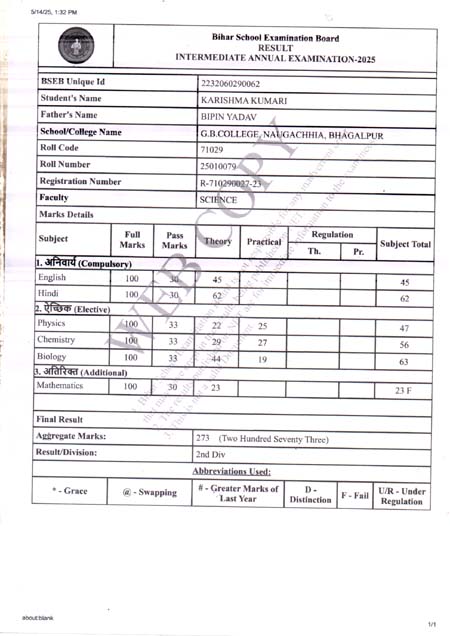 5/14/25, 1:32 PM
Bihar School Examination Board
RESULT
INTERMEDIATE ANNUAL EXAMINATION-2025
BSEB Unique Id 2232060290062
Student's Name KARISHMA KUMARI
Father's Name BIPIN YADAV
School/College Name G.B.COLLEGE, NAUGACHHIA, BHAGALPUR
Roll Code 71029
Roll Number 25010079
Registration Number R-710290027-23
Faculty SCIENCE
Marks Details
Subject Full Marks Pass Marks Theory Practical Regulation Th. Pr. Subject Total
1. अनिवार्य (Compulsory)
English 100 30 45 45
Hindi 100 30 62 62
2. ऐच्छिक (Elective)
Physics 100 33 22 25 47
Chemistry 100 33 29 27 56
Biology 100 33 44 19 63
3. अतिरिक्त (Additional)
Mathematics 100 30 23 23 F
Final Result
Aggregate Marks: 273 (Two Hundred Seventy Three)
Result/Division: 2nd Div
Abbreviations Used:
* - Grace @ - Swapping # - Greater Marks of Last Year D - Distinction F - Fail U/R - Under Regulation
WEB COPY
about:blank
1/1